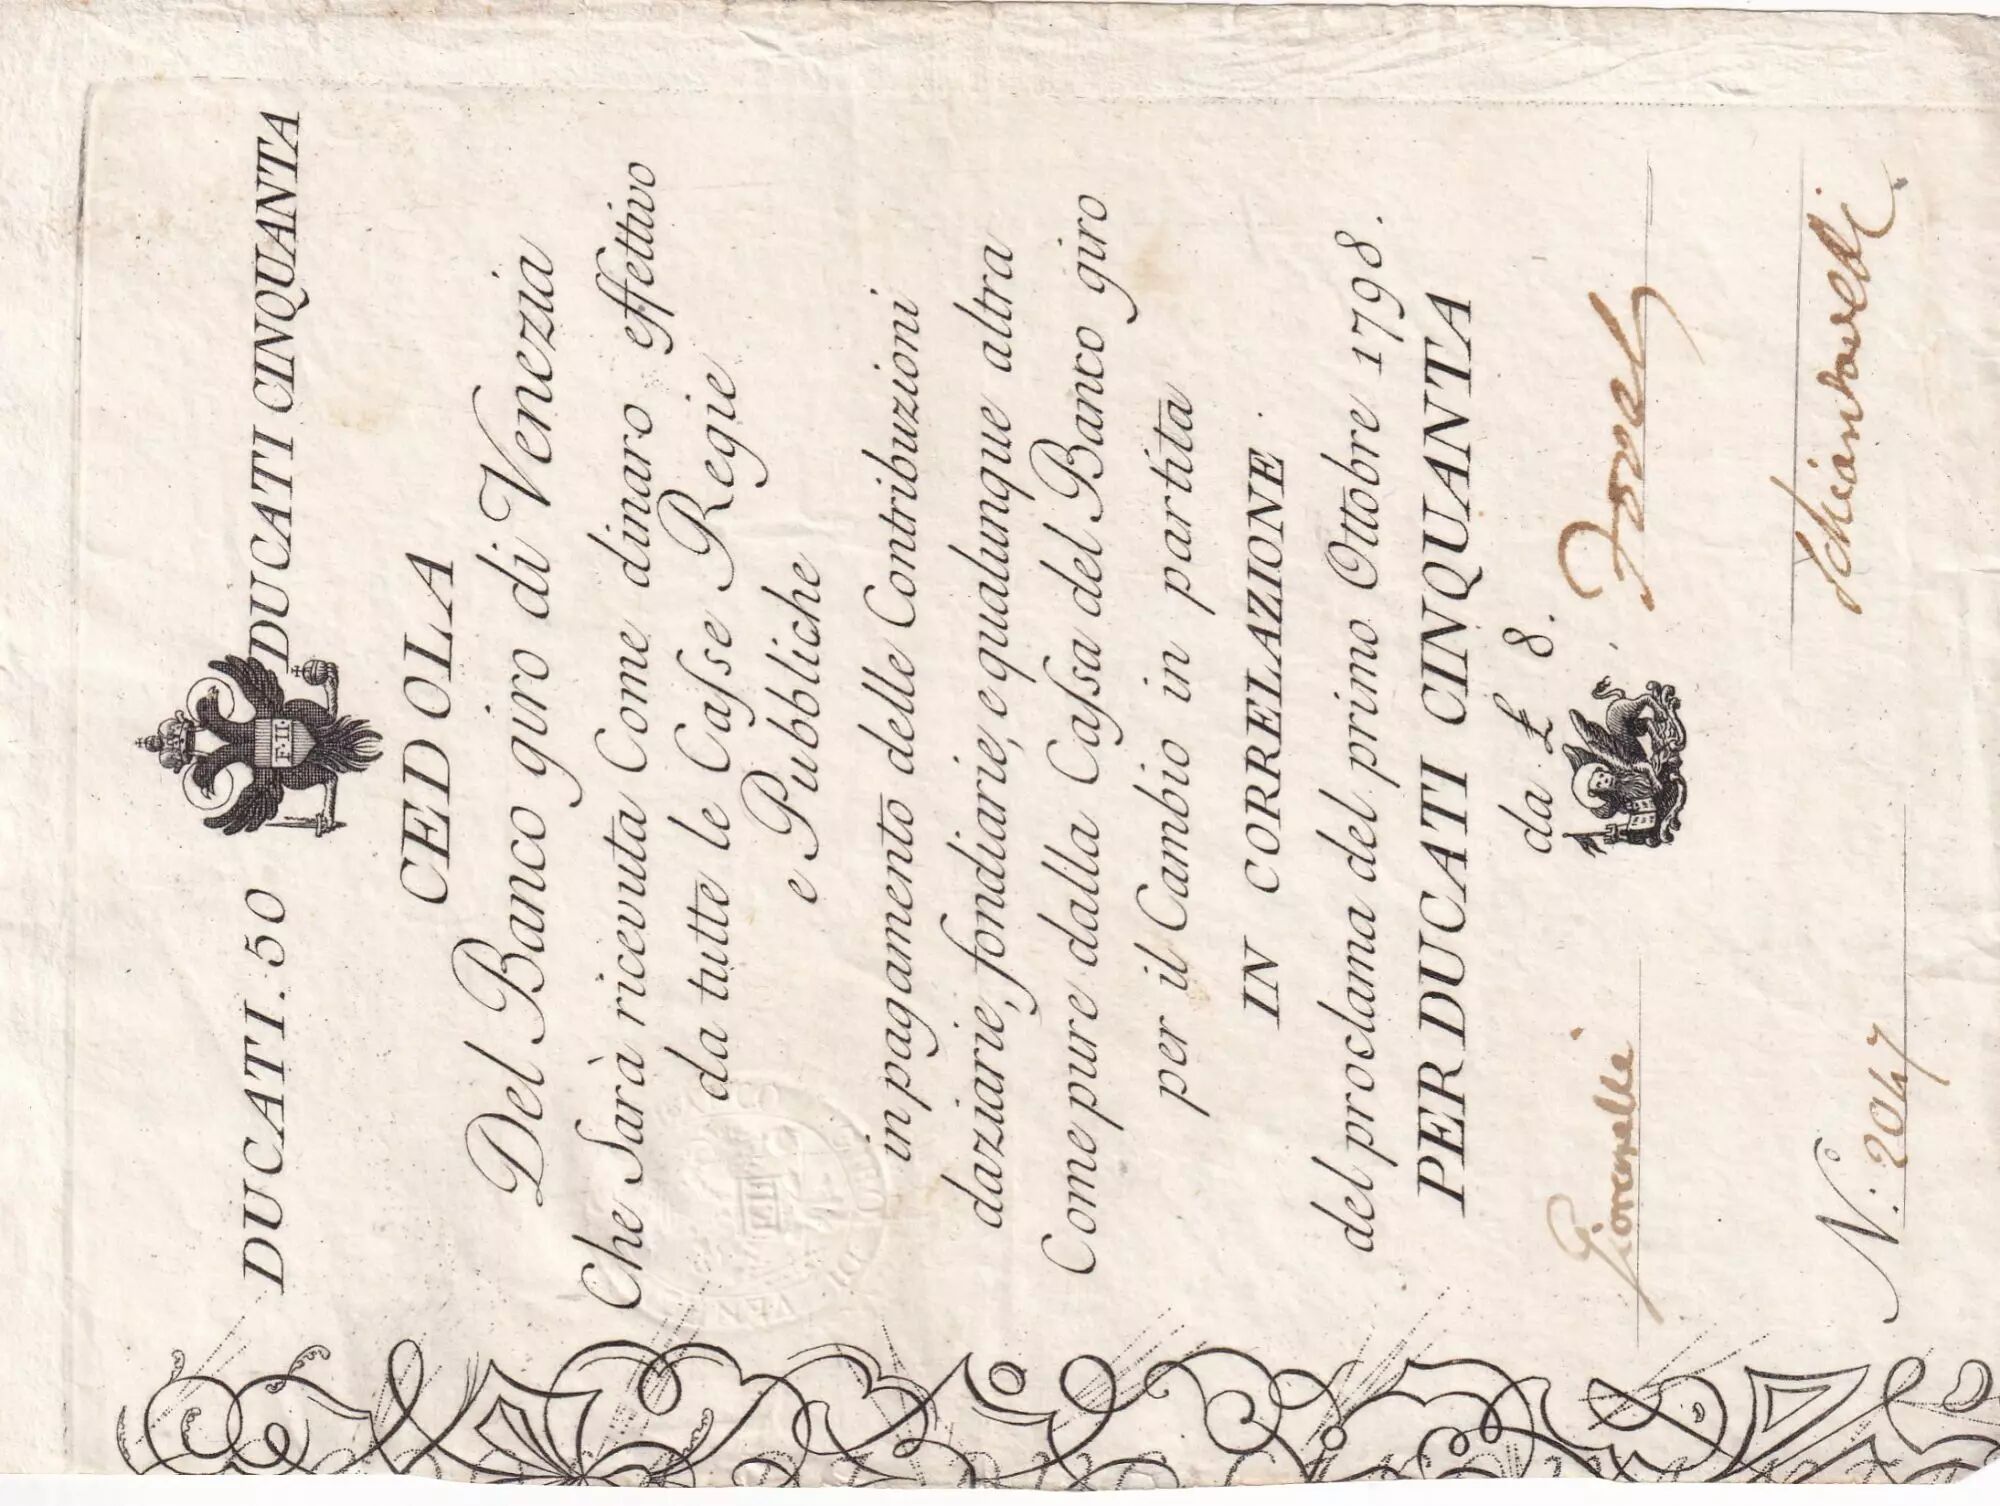 DUCATI. 50 DUCATI CINQUANTA
F. II.
CEDOLA
Del Banco giro di Venezia
Che Sarà ricevuta Come dinaro effettivo
da tutte le Caſse Regie
e Pubbliche
in pagamento delle Contribuzioni
daziarie, fondiarie, e qualunque altra
Come pure dalla Caſsa del Banco giro
per il Cambio in partita
IN CORRELAZIONE
del proclama del primo Ottobre 1798.
PER DUCATI CINQUANTA
da £ 8.
Giovanelli
Schiantarelli
N.º 2047